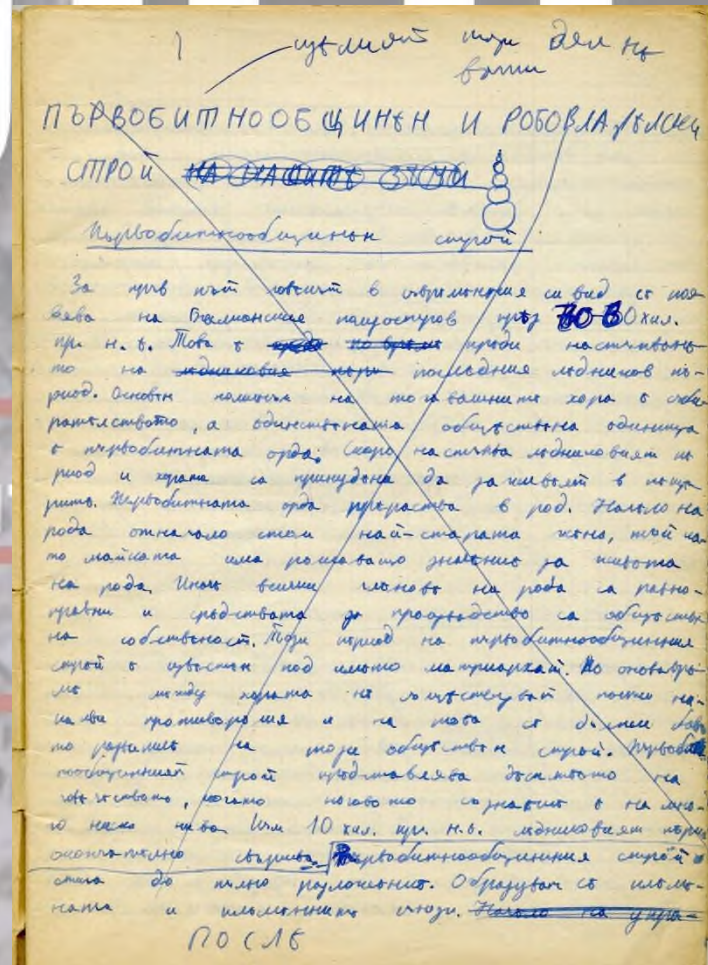 1
целият този дял не
важи
ПЪРВОБИТНООБЩИНЕН И РОБОВЛАДЕЛСКИ
СТРОЙ НА НАШИТЕ ЗЕМИ
Първобитнообщинен строй
За пръв път човекът в съвременния си вид се поя-
вява на Балканския полуостров през 80 хил.
пр. н.е. Това е преди настъпване-
то на последния ледников пе-
риод. Основен поминък на тогавашните хора е съби-
рателството, а единствената обществена единица
е първобитната орда. Скоро настъпва ледниковият пе
риод и хората са принудени да заживеят в пеще
рите. Първобитната орда прераства в род. Начело на
рода отначало стои най-старата жена, тъй ка-
то майката има решаващо значение за живота
на рода. Иначе всички членове на рода са равно-
правни и средствата за производство са обществе
на собственост. Този период на първобитнообщинния
строй е известен под името матриархат. По онова вре-
ме между хората не съществуват почти ни-
какви противоречия и на това се дължи
то развитие на този обществен строй. Първобит
нообщинният строй представлява детството на
човечеството, когато неговото съзнание е на мно-
го ниско ниво. Към 10 хил. пр. н.е. ледниковият период
окончателно свършва. Първобитнообщинния строй
стига до пълно разложение. Образуват се племе-
ната и племенните съюзи. Начело на
ПОСЛЕ